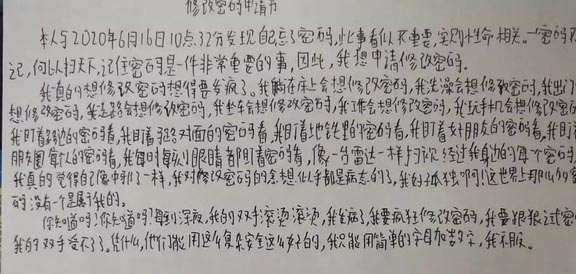 修改密码申请书
本人与2020年6月16日10点32分发现自己忘了密码,此事看似不重要,实则性命相关。一密码不
记,何以扫天下,记住密码是一件非常重要的事,因此,我想申请修改密码。
我真的想修改密码想得要发疯了。我躺在床上会想修改密码,我洗澡会想修改密码,我出门
想修改密码,我走路会想修改密码,我坐车会想修改密码,我工作会想修改密码,我玩手机会想修改密码
我盯着路边的密码看,我盯着马路对面的密码看,我盯着地铁里的密码看,我盯着女朋友的密码看,我盯
朋友圈每个人的密码看,我每时每刻眼睛都盯着密码看,像一台雷达一样扫视经过我身边的每个密码
我真的觉得自己像中邪了一样,我对修改密码的念想似乎都是病态的了,我好孤独啊!这世界上那么多密
码没有一个是属于我的。
你知道吗?你知道吗?每到深夜,我的双手滚烫滚烫,我发病了,我要疯狂修改密码,我要狠狠试密
我的双手受不了。凭什么,他们能用这么复杂安全这么好的,我只能用简单的字母加数字,我不服。